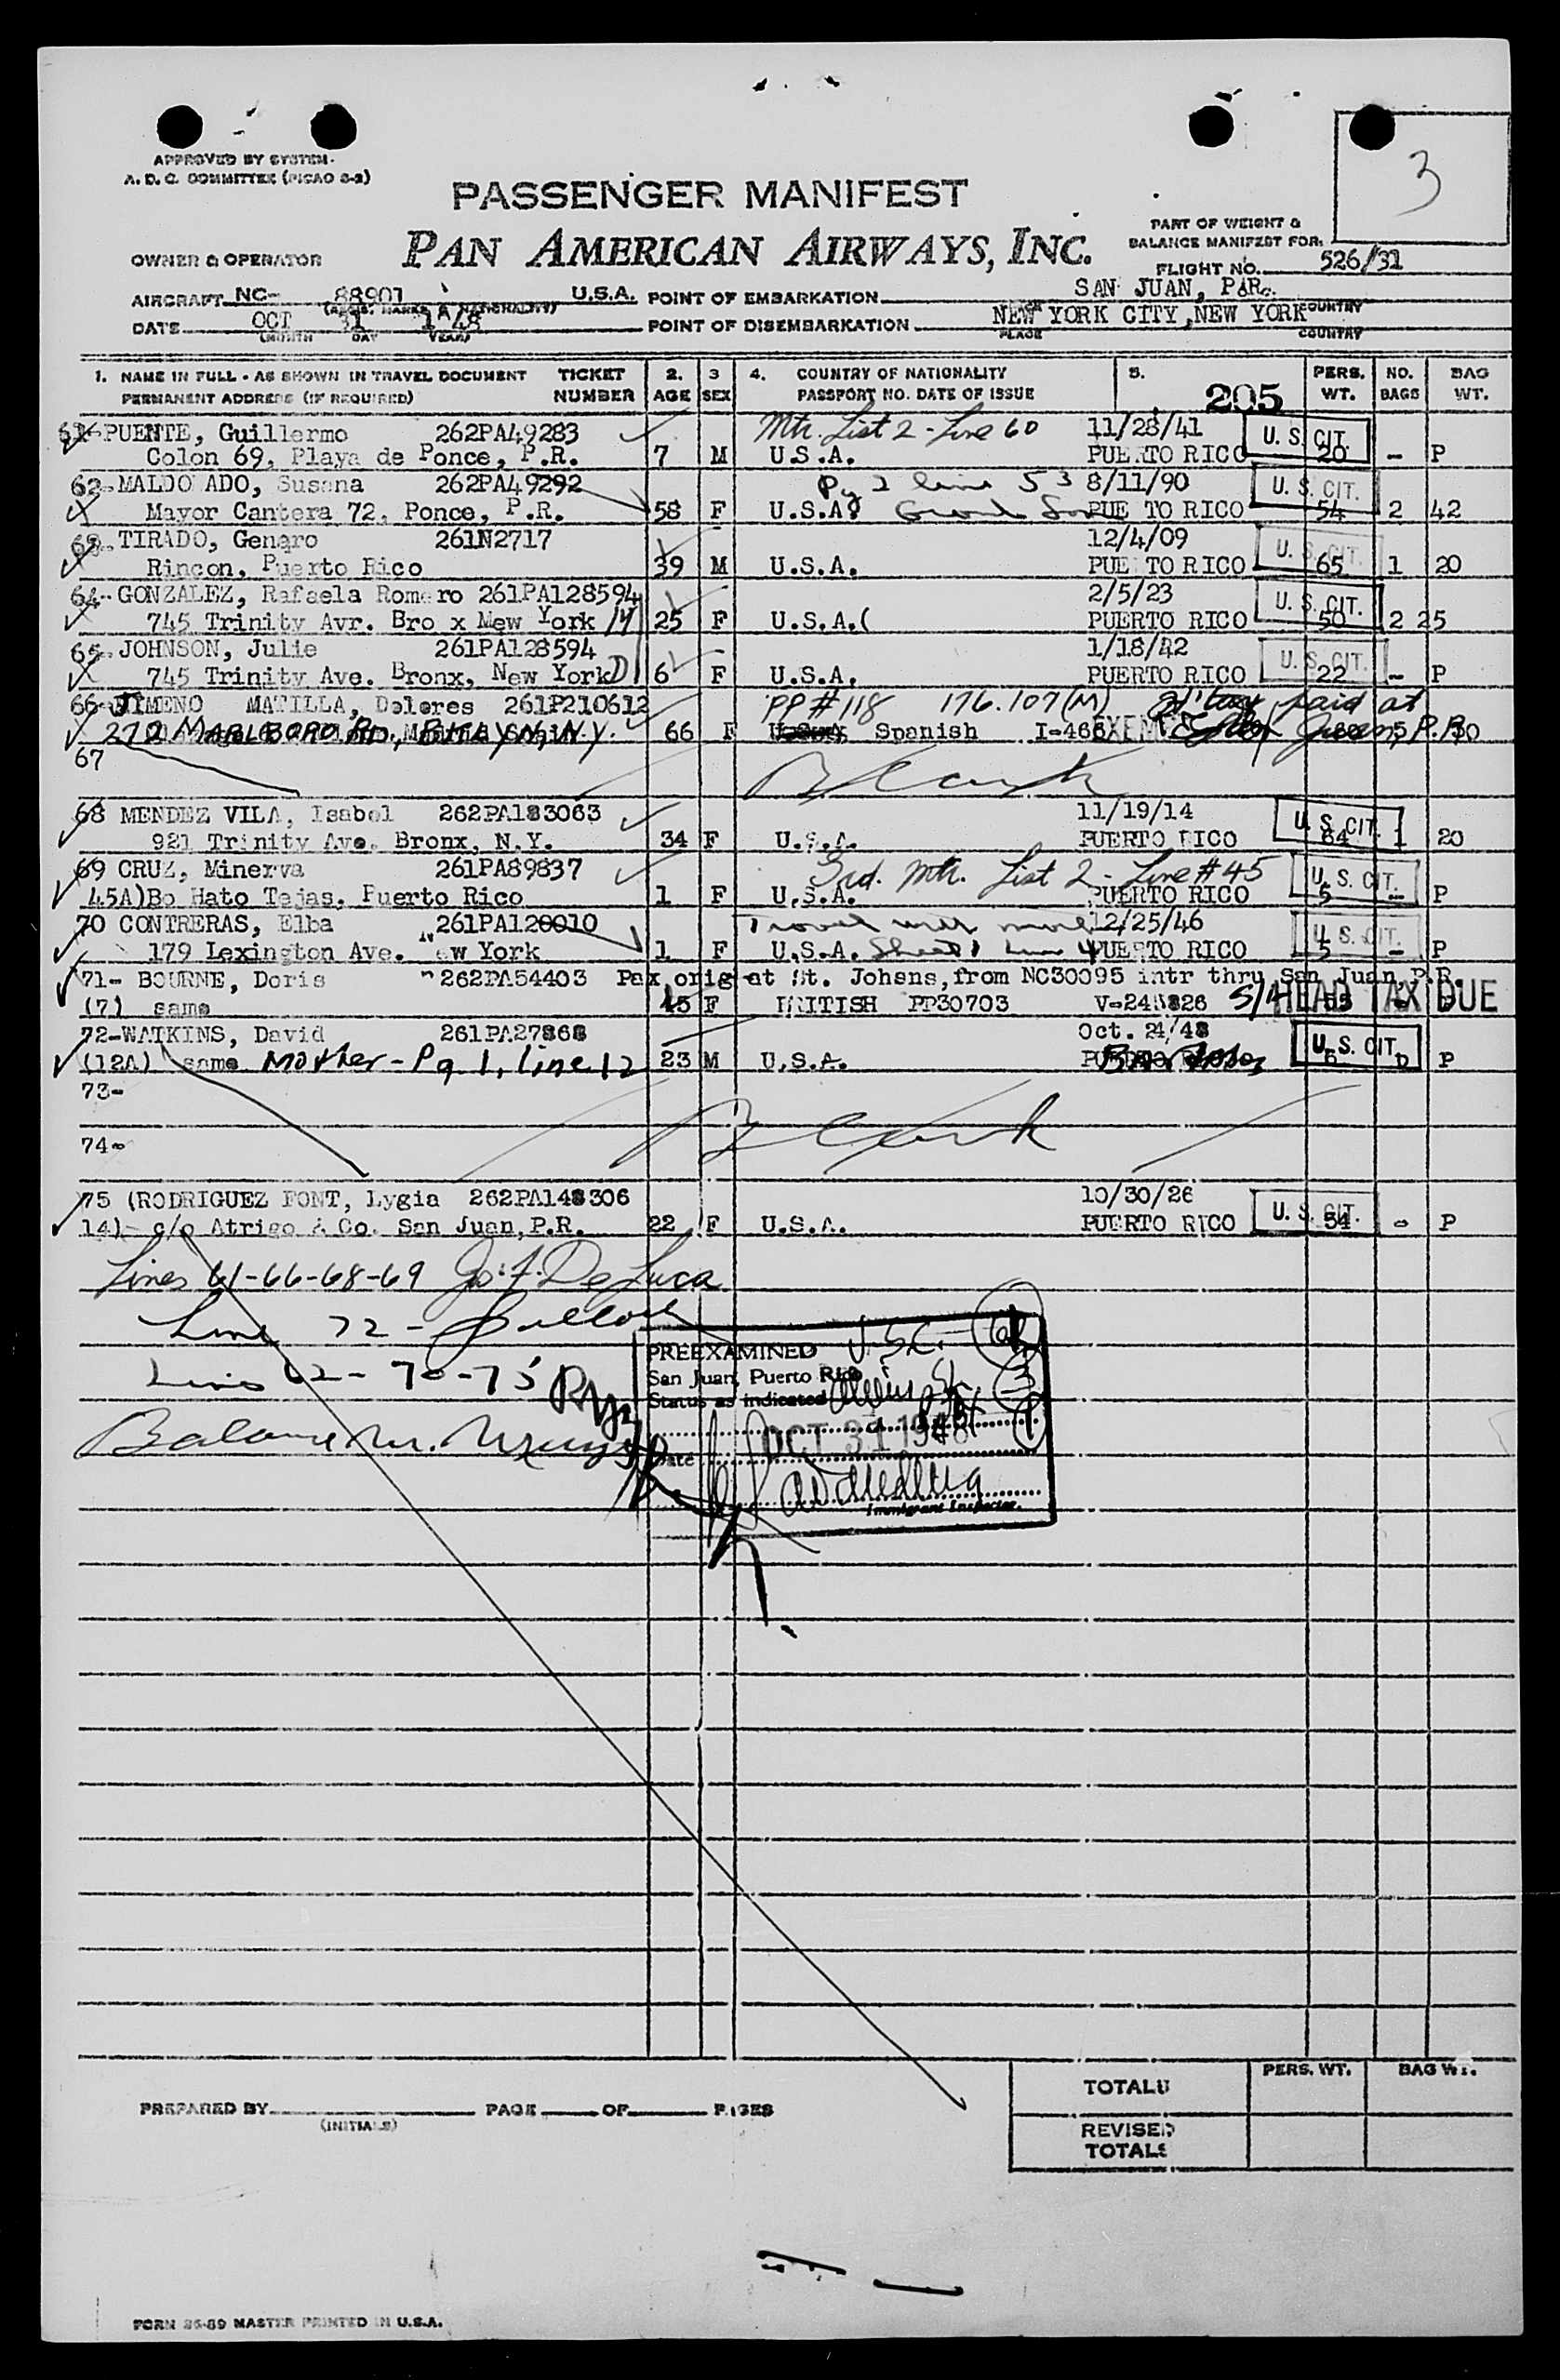 3
APPROVED BY SYSTEM-
A. D. C. COMMITTEE (PICAO S-2)
PASSENGER MANIFEST
PAN AMERICAN AIRWAYS, INC.
PART OF WEIGHT &
BALANCE MANIFEST FOR:
OWNER & OPERATOR
FLIGHT NO. 526/31
AIRCRAFT NC- 88901 U.S.A. POINT OF EMBARKATION SAN JUAN, P.R.
(REGIS. MARKS & NATIONALITY) COUNTRY
DATE OCT 31 1948 POINT OF DISEMBARKATION NEW YORK CITY, NEW YORK
(MONTH DAY YEAR) PLACE COUNTRY
1. NAME IN FULL - AS SHOWN IN TRAVEL DOCUMENT TICKET 2. 3 4. COUNTRY OF NATIONALITY 5. PERS. NO. BAG
PERMANENT ADDRESS (IF REQUIRED) NUMBER AGE SEX PASSPORT NO. DATE OF ISSUE 205 WT. BAGS WT.
61-PUENTE, Guillermo 262PA49283 Mtr. List 2 - Line 60 11/28/41 U.S. CIT.
Colon 69, Playa de Ponce, P.R. 7 M U.S.A. PUERTO RICO 20 - P
62-MALDO ADO, Susana 262PA49292 Pg 2 line 53 8/11/90 U.S. CIT.
Mayor Cantera 72, Ponce, P.R. 58 F U.S.A. PUE TO RICO 54 2 42
63-TIRADO, Genaro 261N2717 12/4/09 U.S. CIT.
Rincon, Puerto Rico 39 M U.S.A. PUE TO RICO 65 1 20
64-GONZALEZ, Rafaela Romero 261PA128594 2/5/23 U.S. CIT.
745 Trinity Avr. Bro x Mew York M 25 F U.S.A.( PUERTO RICO 50 2 25
65-JOHNSON, Julie 261PA128594 1/18/42 U.S. CIT.
745 Trinity Ave. Bronx, New York D 6 F U.S.A. PUERTO RICO 22 - P
66-JIMENO MATILLA, Dolores 261P210612 PP # 118 176.107(M) paid at
272 MARLBORO RD, BKLYN, N.Y. 66 F Spanish I-466 San Juan, P.R.
67
68 MENDEZ VILA, Isabel 262PA183063 11/19/14 U.S. CIT.
921 Trinity Ave. Bronx, N.Y. 34 F U.S.A. PUERTO RICO 64 1 20
69 CRUZ, Minerva 261PA89837 3rd. Mtr. List 2 - Line #45 U.S. CIT.
45A)Bo Hato Tejas, Puerto Rico 1 F U.S.A. PUERTO RICO 5 - P
70 CONTRERAS, Elba 261PA120010 Travel with 12/25/46 U.S. CIT.
179 Lexington Ave. New York 1 F U.S.A. Sheet 1 Line 4 PUERTO RICO 5 - P
71- BOURNE, Doris 262PA54403 Pax orig at St. Johsns, from NC30095 intr thru San Juan P.R.
(7) same 45 F BRITISH PP30703 V-245826 HEAD TAX DUE
72-WATKINS, David 261PA27868 Oct. 24/48 U.S. CIT.
(12A) same Mother - Pg 1, line 12 23 M U.S.A. P
73-
74-
75 (RODRIGUEZ FONT, Lygia 262PA148306 10/30/26 U.S. CIT.
14)- c/o Atrigo & Co. San Juan, P.R. 22 F U.S.A. PUERTO RICO 54 - P
Lines 61-66-68-69 Jos. F. De Luca
Line 72 -
Lines 62-70-75
Balance
PREEXAMINED
San Juan, Puerto Rico
Status as indicated
Date OCT 31 1948
Immigrant Inspector.
TOTALS PERS. WT. BAG WT.
PREPARED BY PAGE OF PAGES
(INITIALS)
REVISED
TOTALS
FORM 36-89 MASTER PRINTED IN U.S.A.